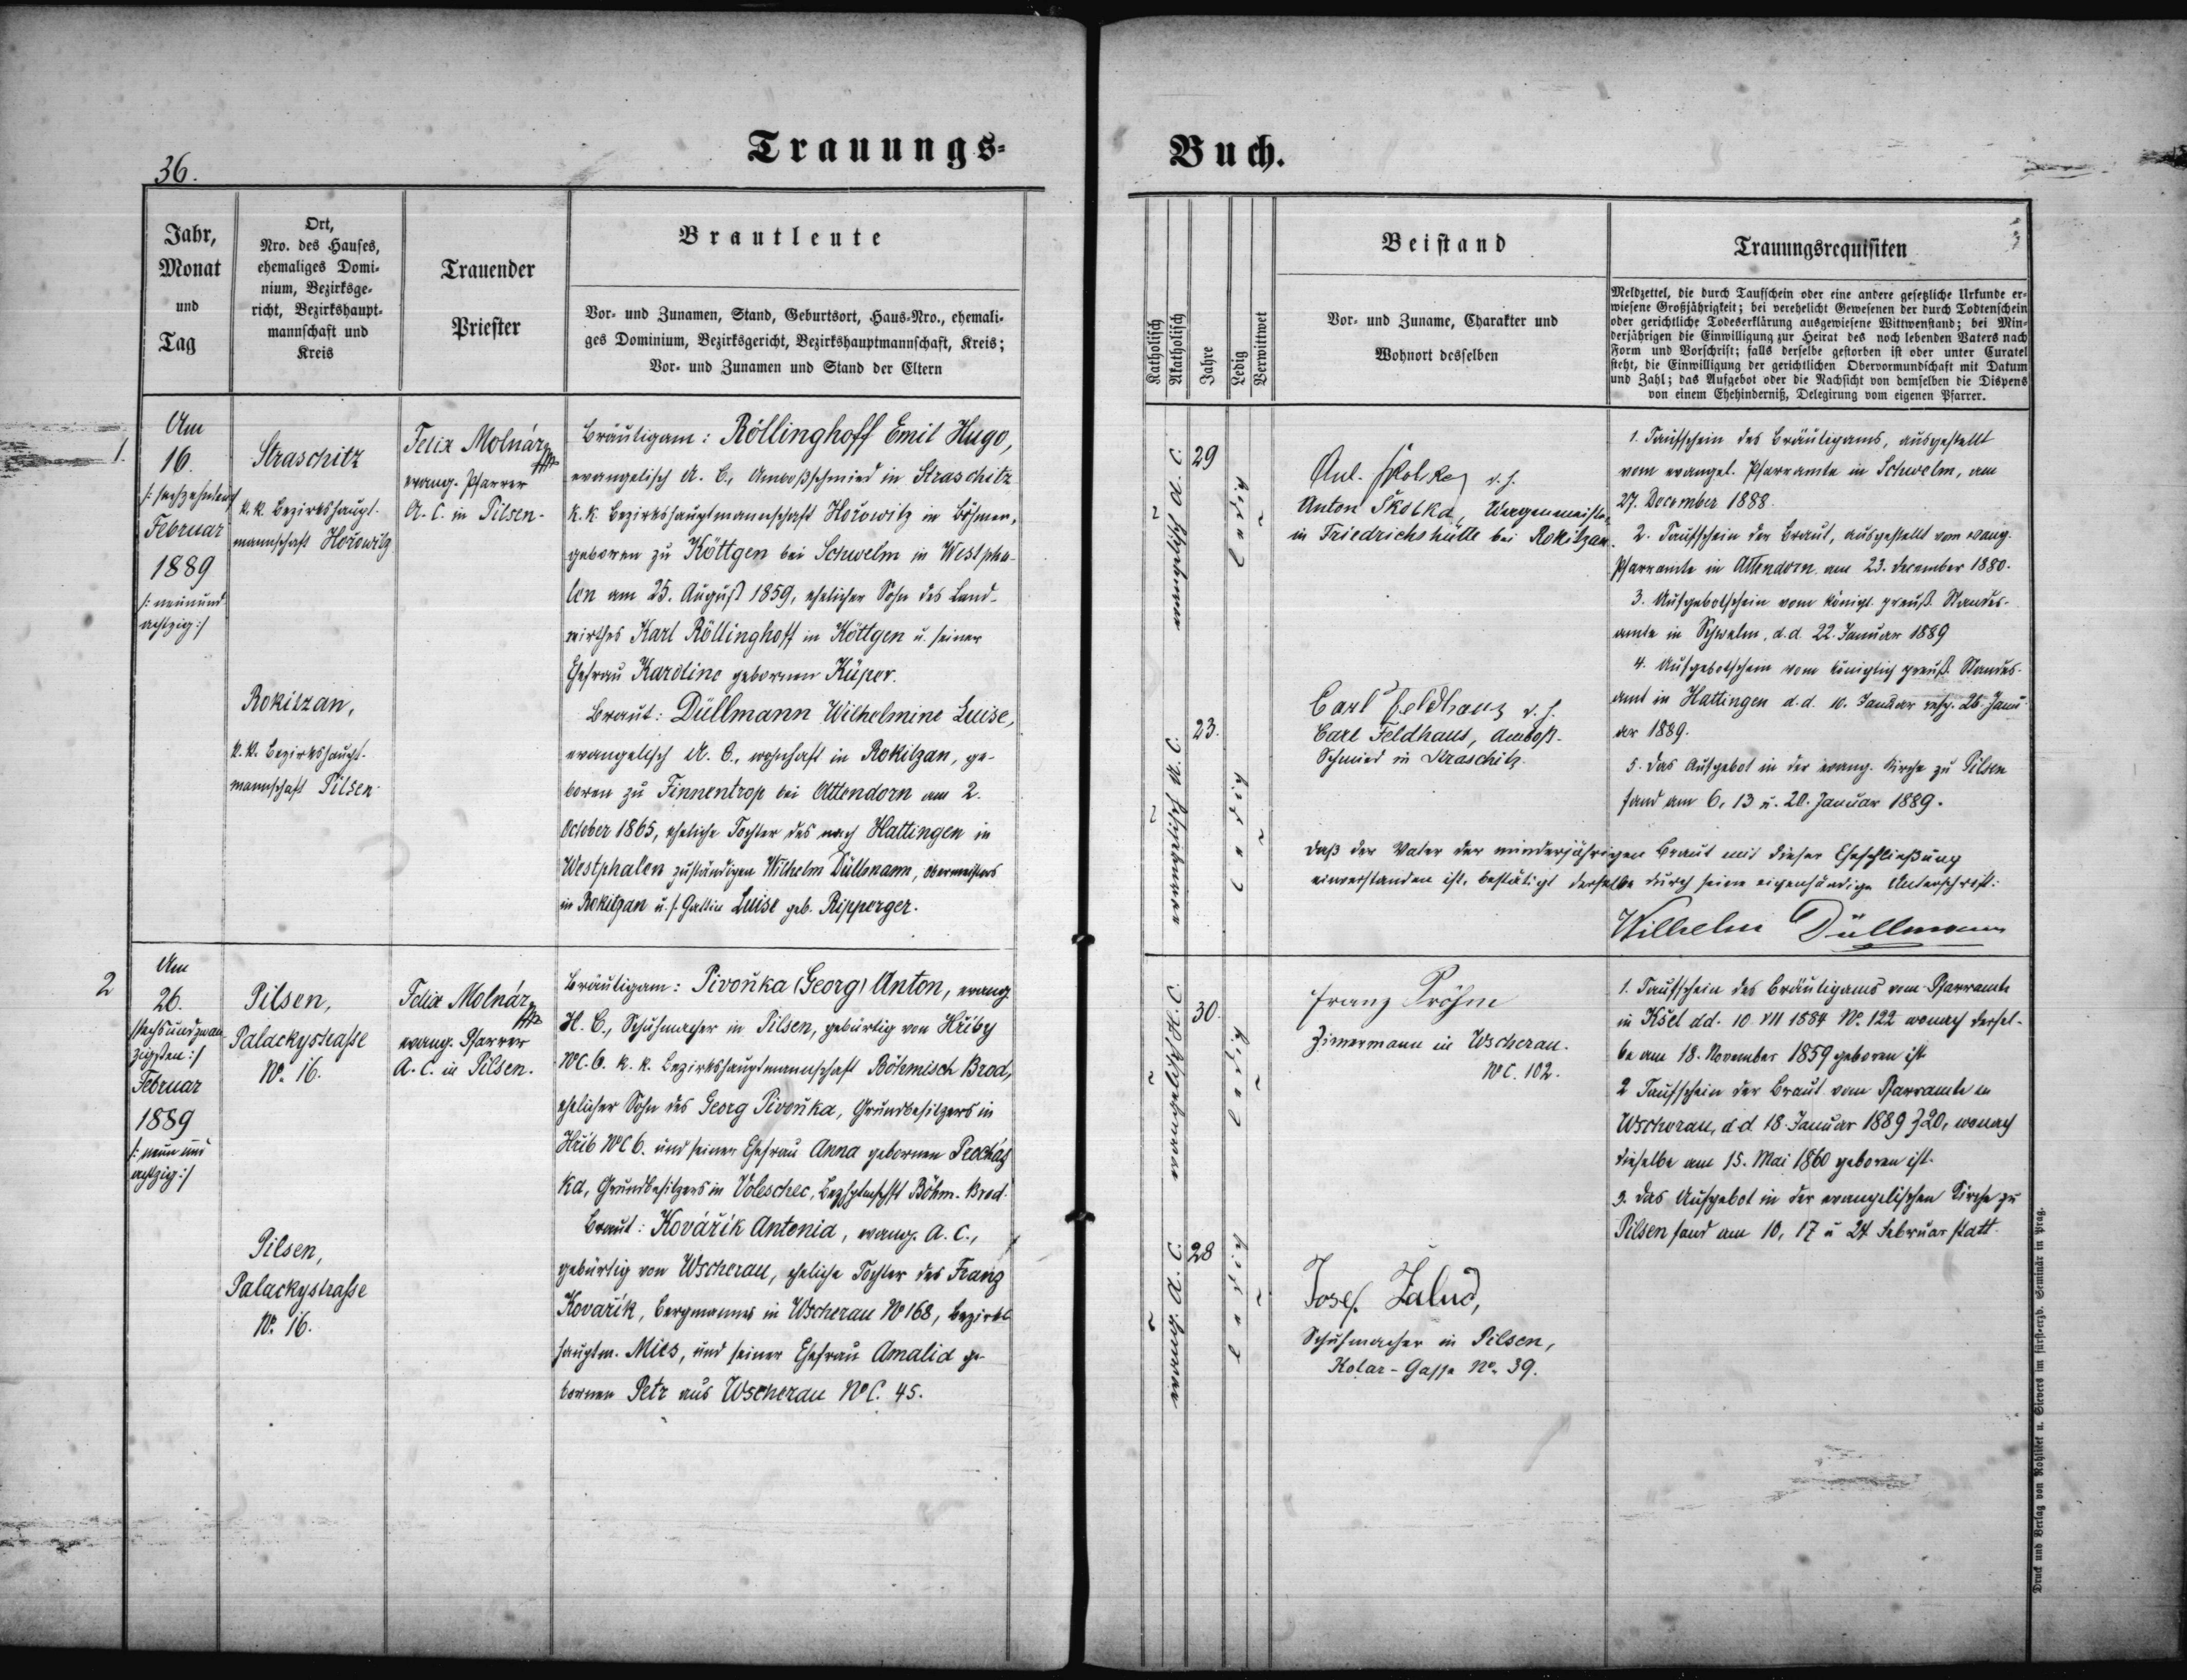 36.
Trauungs-
Jahr,
Monat
und
Tag
Ort,
Nro. des Hauses,
ehemaliges Domi-
nium, Bezirksge-
richt, Bezirkshaupt-
mannschaft und
Kreis
Trauender
Priester
Brautleute
Vor- und Zunamen, Stand, Geburtsort, Haus-Nro., ehemali-
ges Dominium, Bezirksgericht, Bezirkshauptmannschaft, Kreis;
Vor- und Zunamen und Stand der Eltern
1.
Am
16.
/: sechzehnten :/
Februar
1889
/: neunund
achtzig :/
Straschitz
k. k. Bezirkshaupt-
mannschaft Hořowitz
Rokitzan,
k. k. Bezirkshaupt-
mannschaft Pilsen
Felix Molnár
evang. Pfarrer
A. C. in Pilsen.
Bräutigam: Röllinghoff Emil Hugo,
evangelisch A. C., Amboßschmied in Straschitz
k. k. Bezirkshauptmannschaft Hořowitz in Böhmen,
geboren zu Köttgen bei Schwelm in Westpha-
len am 25. August 1859, ehelicher Sohn des Land-
wirthes Karl Röllinghoff in Köttgen u. seiner
Ehefrau Karoline gebornen Küper.
Braut: Düllmann Wilhelmine Luise,
evangelisch A. C., wohnhaft in Rokitzan, ge-
boren zu Finnentrop bei Attendorn am 2.
October 1865, eheliche Tochter des nach Hattingen in
Westphalen zuständigen Wilhelm Düllmann, Obermeisters
in Rokitzan u. s. Gattin Luise geb. Ripperger.
2
Am
26.
/sechsundzwan
zigsten :/
Februar
1889
/: neun und
achtzig :/
Pilsen,
Palackystraße
No. 16.
Pilsen,
Palackystraße
No. 16.
Felix Molnár
evang. Pfarrer
A. C. in Pilsen.
Bräutigam: Pivoňka (Georg) Anton, evang.
H. C., Schuhmacher in Pilsen, gebürtig von Hřiby
NC. 6. k. k. Bezirkshauptmannschaft Böhmisch Brod,
ehelicher Sohn des Georg Pivoňka, Grundbesitzers in
Hřib NC 6. und seiner Ehefrau Anna gebornen Procház
ka, Grundbesitzers in Voleschec, Bezhptmschft Böhm. Brod.
Braut: Kovářík Antonia, evang. A. C.,
gebürtig von Wscherau, eheliche Tochter des Franz
Kovařík, Bergmannes in Wscherau No 168, Bezirks
hauptm. Mies, und seiner Ehefrau Amalia ge-
bornen Petr aus Wscherau No C. 45.
Buch.
Katholisch
Akatholisch
Jahre
Ledig
Verwittwet
Beistand
Vor- und Zuname, Charakter und
Wohnort desselben
Trauungsrequisiten
Meldzettel, die durch Taufschein oder eine andere gesetzliche Urkunde er-
wiesene Großjährigkeit; bei verehelicht Gewesenen der durch Todtenschein
oder gerichtliche Todeserklärung ausgewiesene Wittwenstand; bei Min-
derjährigen die Einwilligung zur Heirat des noch lebenden Vaters nach
Form und Vorschrift; falls derselbe gestorben ist oder unter Curatel
steht, die Einwilligung der gerichtlichen Obervormundschaft mit Datum
und Zahl; das Aufgebot oder die Nachsicht von demselben die Dispens
von einem Ehehinderniß, Delegirung vom eigenen Pfarrer.
evangelisch A. C.
29
ledig
Ant. Skolka
Anton Skolka, Wagenmeister
in Friedrichshütte bei Rokitzan.
evangelisch A. C.
23.
ledig
Carl Feldhaus
Carl Feldhaus, Amboß-
Schmied in Straschitz.
1. Taufschein des Bräutigams, ausgestellt
vom evangel. Pfarramte in Schwelm, am
27. December 1888.
2. Taufschein der Braut, ausgestellt vom evang.
Pfarramte in Attendorn am 23. December 1880.
3. Aufgebotschein vom königl. preuß. Standes-
amte in Schwelm, d. d. 22. Januar 1889
4. Aufgebotschein vom königlich preuß. Standes-
amt in Hattingen d. d. 10. Januar resp. 26. Janu
ar 1889.
5. Das Aufgebot in der evang. Kirche zu Pilsen
fand am 6, 13 u. 20. Januar 1889.
Daß der Vater der minderjährigen Braut mit dieser Eheschließung
einverstanden ist, bestätigt derselbe durch seine eigenhändige Unterschrift:
Wilhelm Düllmann
evangelisch H. C.
30.
ledig
Franz Pröhm
Zimermann in Wscherau.
NC. 102.
evang. A. C.
28
ledig
Josef Žalud,
Schuhmacher in Pilsen,
Kolar-Gasse No. 39.
1. Taufschein des Bräutigams vom Pfarramte
in Kšel dd. 10. VII 1884 No. 122 wonach dersel-
be am 18. November 1859 geboren ist
2 Taufschein der Braut vom Pfarramte in
Wscherau, d. d. 18. Januar 1889 Z 20, wonach
dieselbe am 15. Mai 1860 geboren ist.
3. Das Aufgebot in der evangelischen Kirche zu
Pilsen fand am 10, 17 u 24 Februar statt.
Druck und Verlag von Rohliček u. Sievers im fürsterzb. Seminär in Prag.